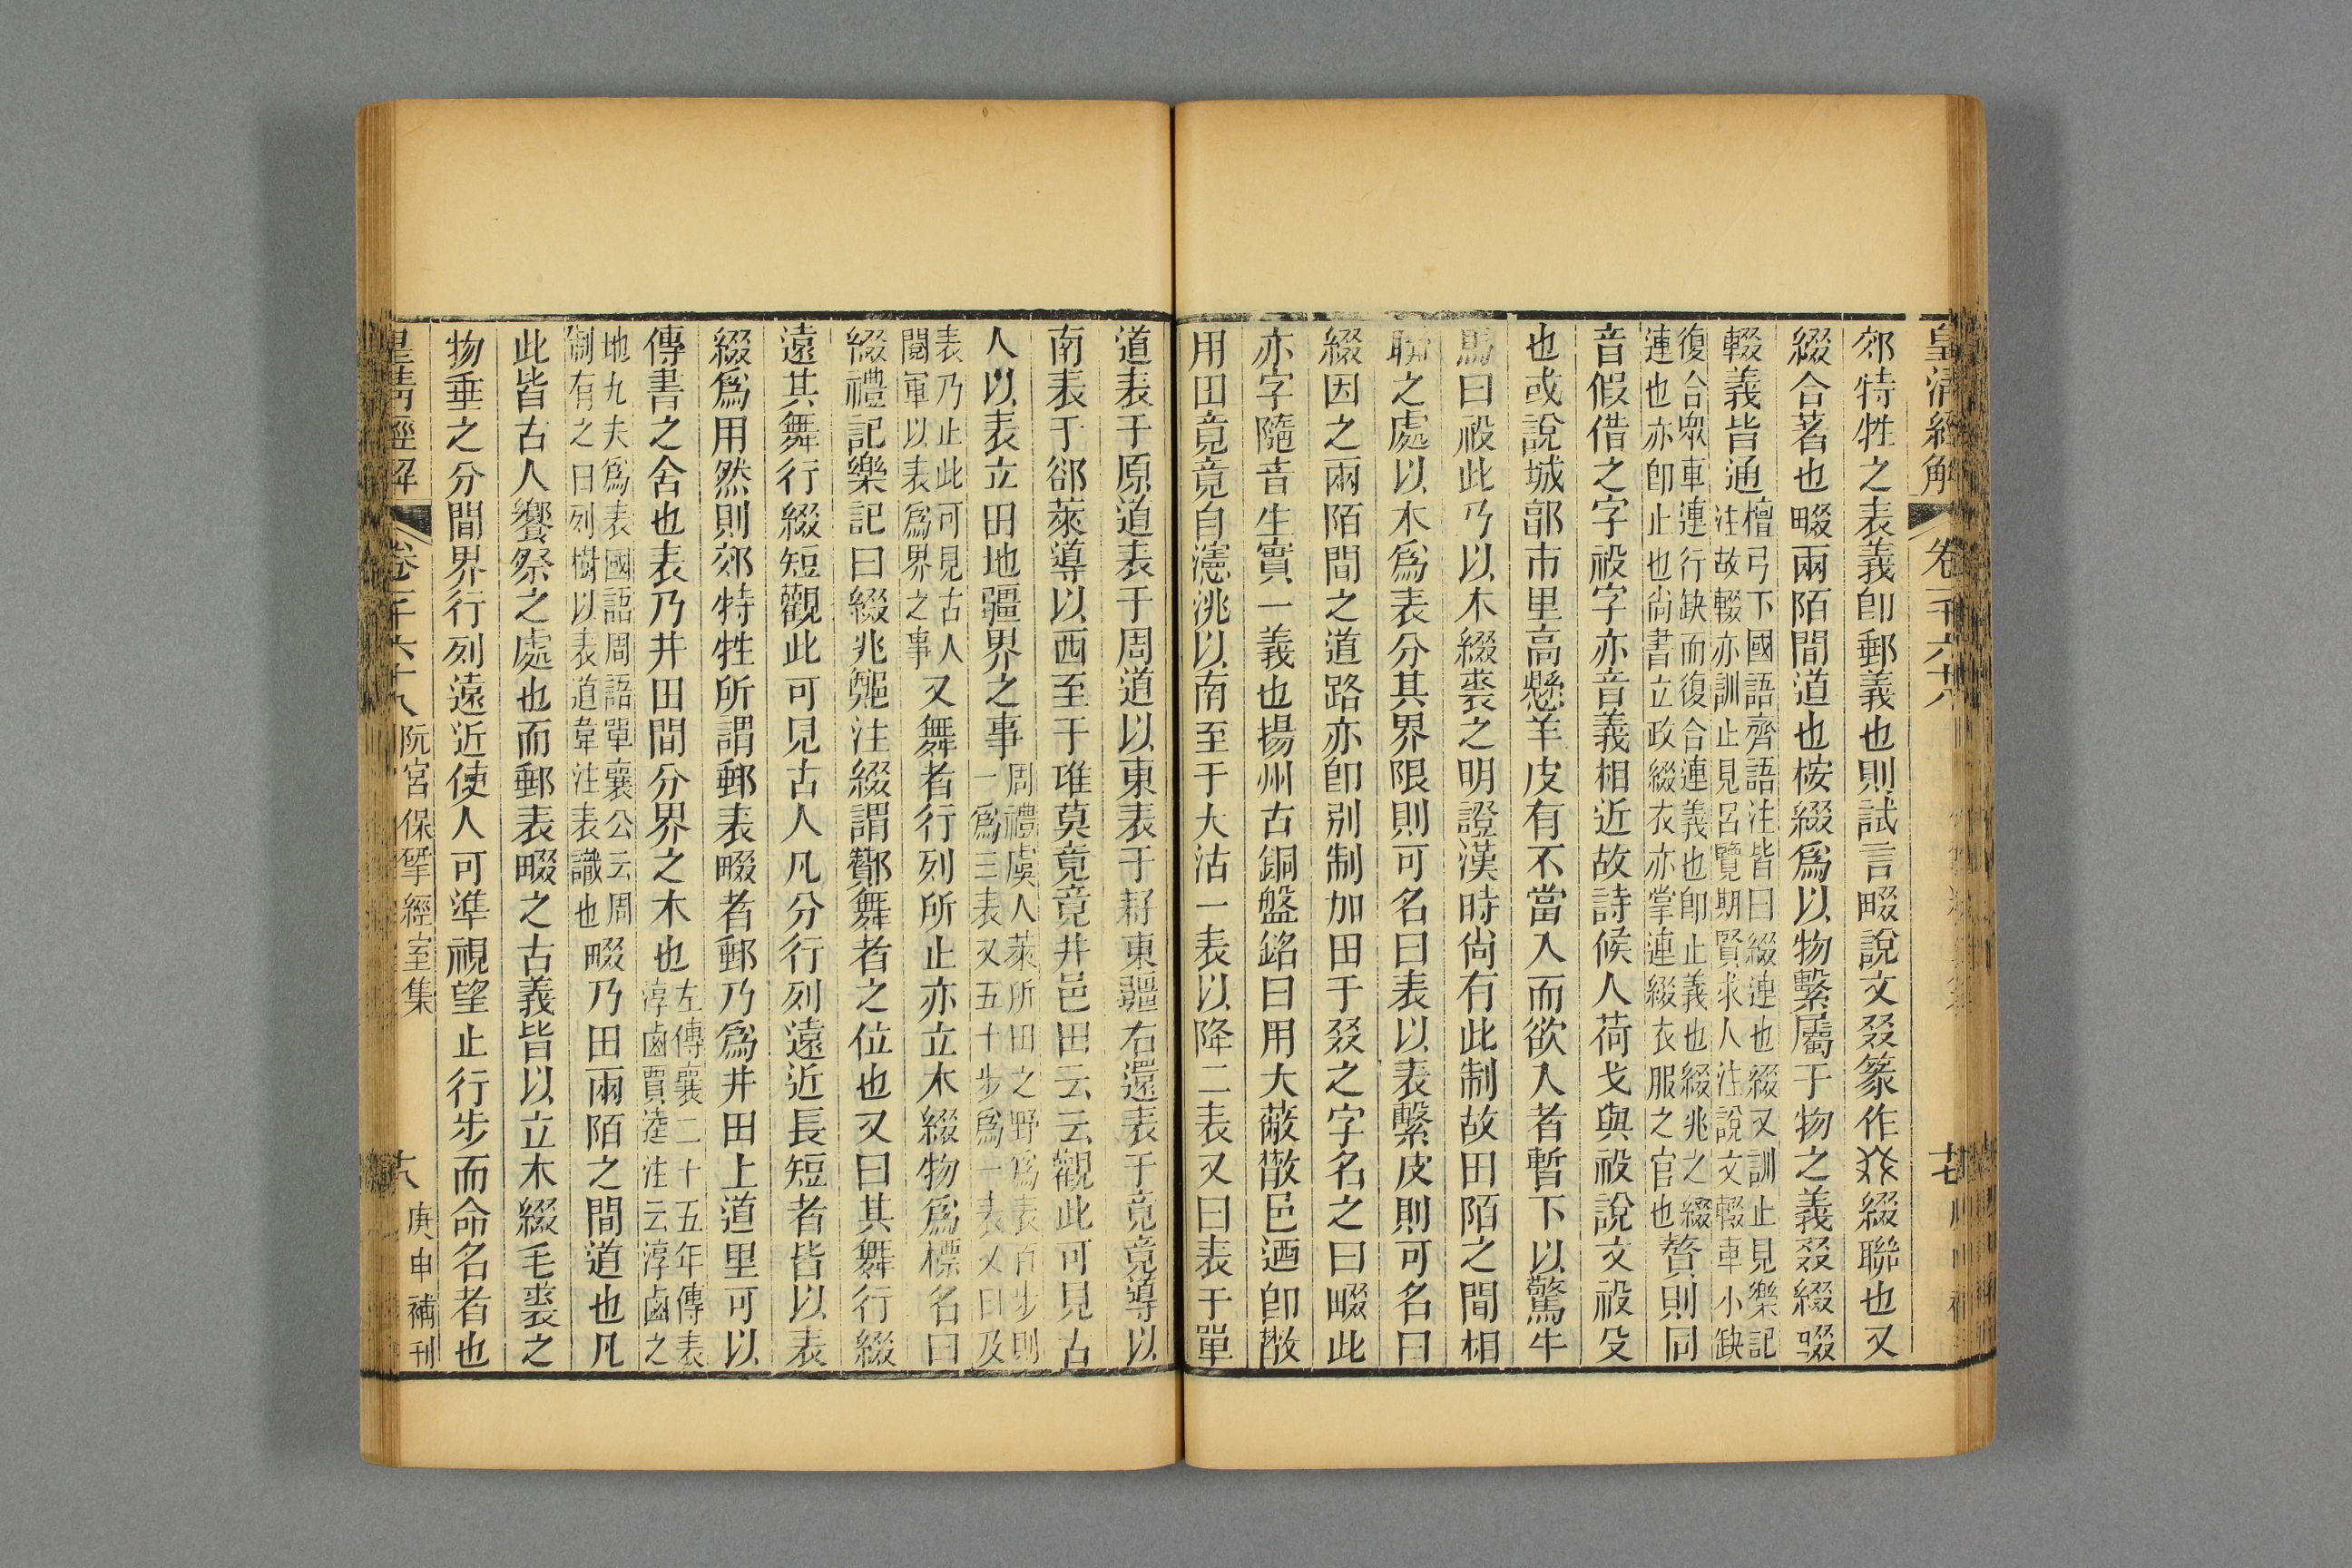 皇清經解 卷千六十八
郊特牲之表義卽郵義也則試言畷說文叕篆作叕綴聯也又
綴合著也畷兩陌間道也桉綴爲以物繫屬于物之義叕綴啜
輟義皆通檀弓下國語齊語注皆曰綴連也綴又訓止見樂記
注故輟亦訓止見呂覽期賢求人注說文輟車小缺
復合眾車連行缺而復合連義也卽止義也綴兆之綴
連也亦卽止也尚書立政綴衣亦掌連綴衣服之官也贅則同
音假借之字祋字亦音義相近故詩候人荷戈與祋說文祋殳
也或說城郭市里高懸羊皮有不當入而欲入者暫下以驚牛
馬曰祋此乃以木綴裘之明證漢時尚有此制故田陌之間相
聯之處以木爲表分其界限則可名曰表以表繫皮則可名曰
綴因之兩陌間之道路亦卽別制加田于叕之字名之曰畷此
亦字隨音生實一義也揚州古銅盤銘曰用大蔽散邑迺卽散
用田竟竟自瀗洮以南至于大沽一表以降二表又曰表于單
道表于原道表于周道以東表于𦓼東疆右還表于竟竟導以
南表于郤萊導以西至于堆莫竟竟井邑田云云觀此可見古
人以表立田地疆界之事周禮虞人萊所田之野爲表百步則
一爲三表又五十步爲一表又曰及
表乃止此可見古人
閱軍以表爲界之事又舞者行列所止亦立木綴物爲標名曰
綴禮記樂記曰綴兆䟫注綴謂酇舞者之位也又曰其舞行綴
遠其舞行綴短觀此可見古人凡分行列遠近長短者皆以表
綴爲用然則郊特牲所謂郵表畷者郵乃爲井田上道里可以
傳書之舍也表乃井田間分界之木也左傳襄二十五年傳表
淳鹵賈逵注云淳鹵之
地九夫爲表國語周語單襄公云周
制有之曰列樹以表道韋注表識也畷乃田兩陌之間道也凡
此皆古人饗祭之處也而郵表畷之古義皆以立木綴毛裘之
物垂之分間界行列遠近使人可準視望止行步而命名者也
皇清經解 卷千六十八 阮宮保揅經室集 庚申補刊